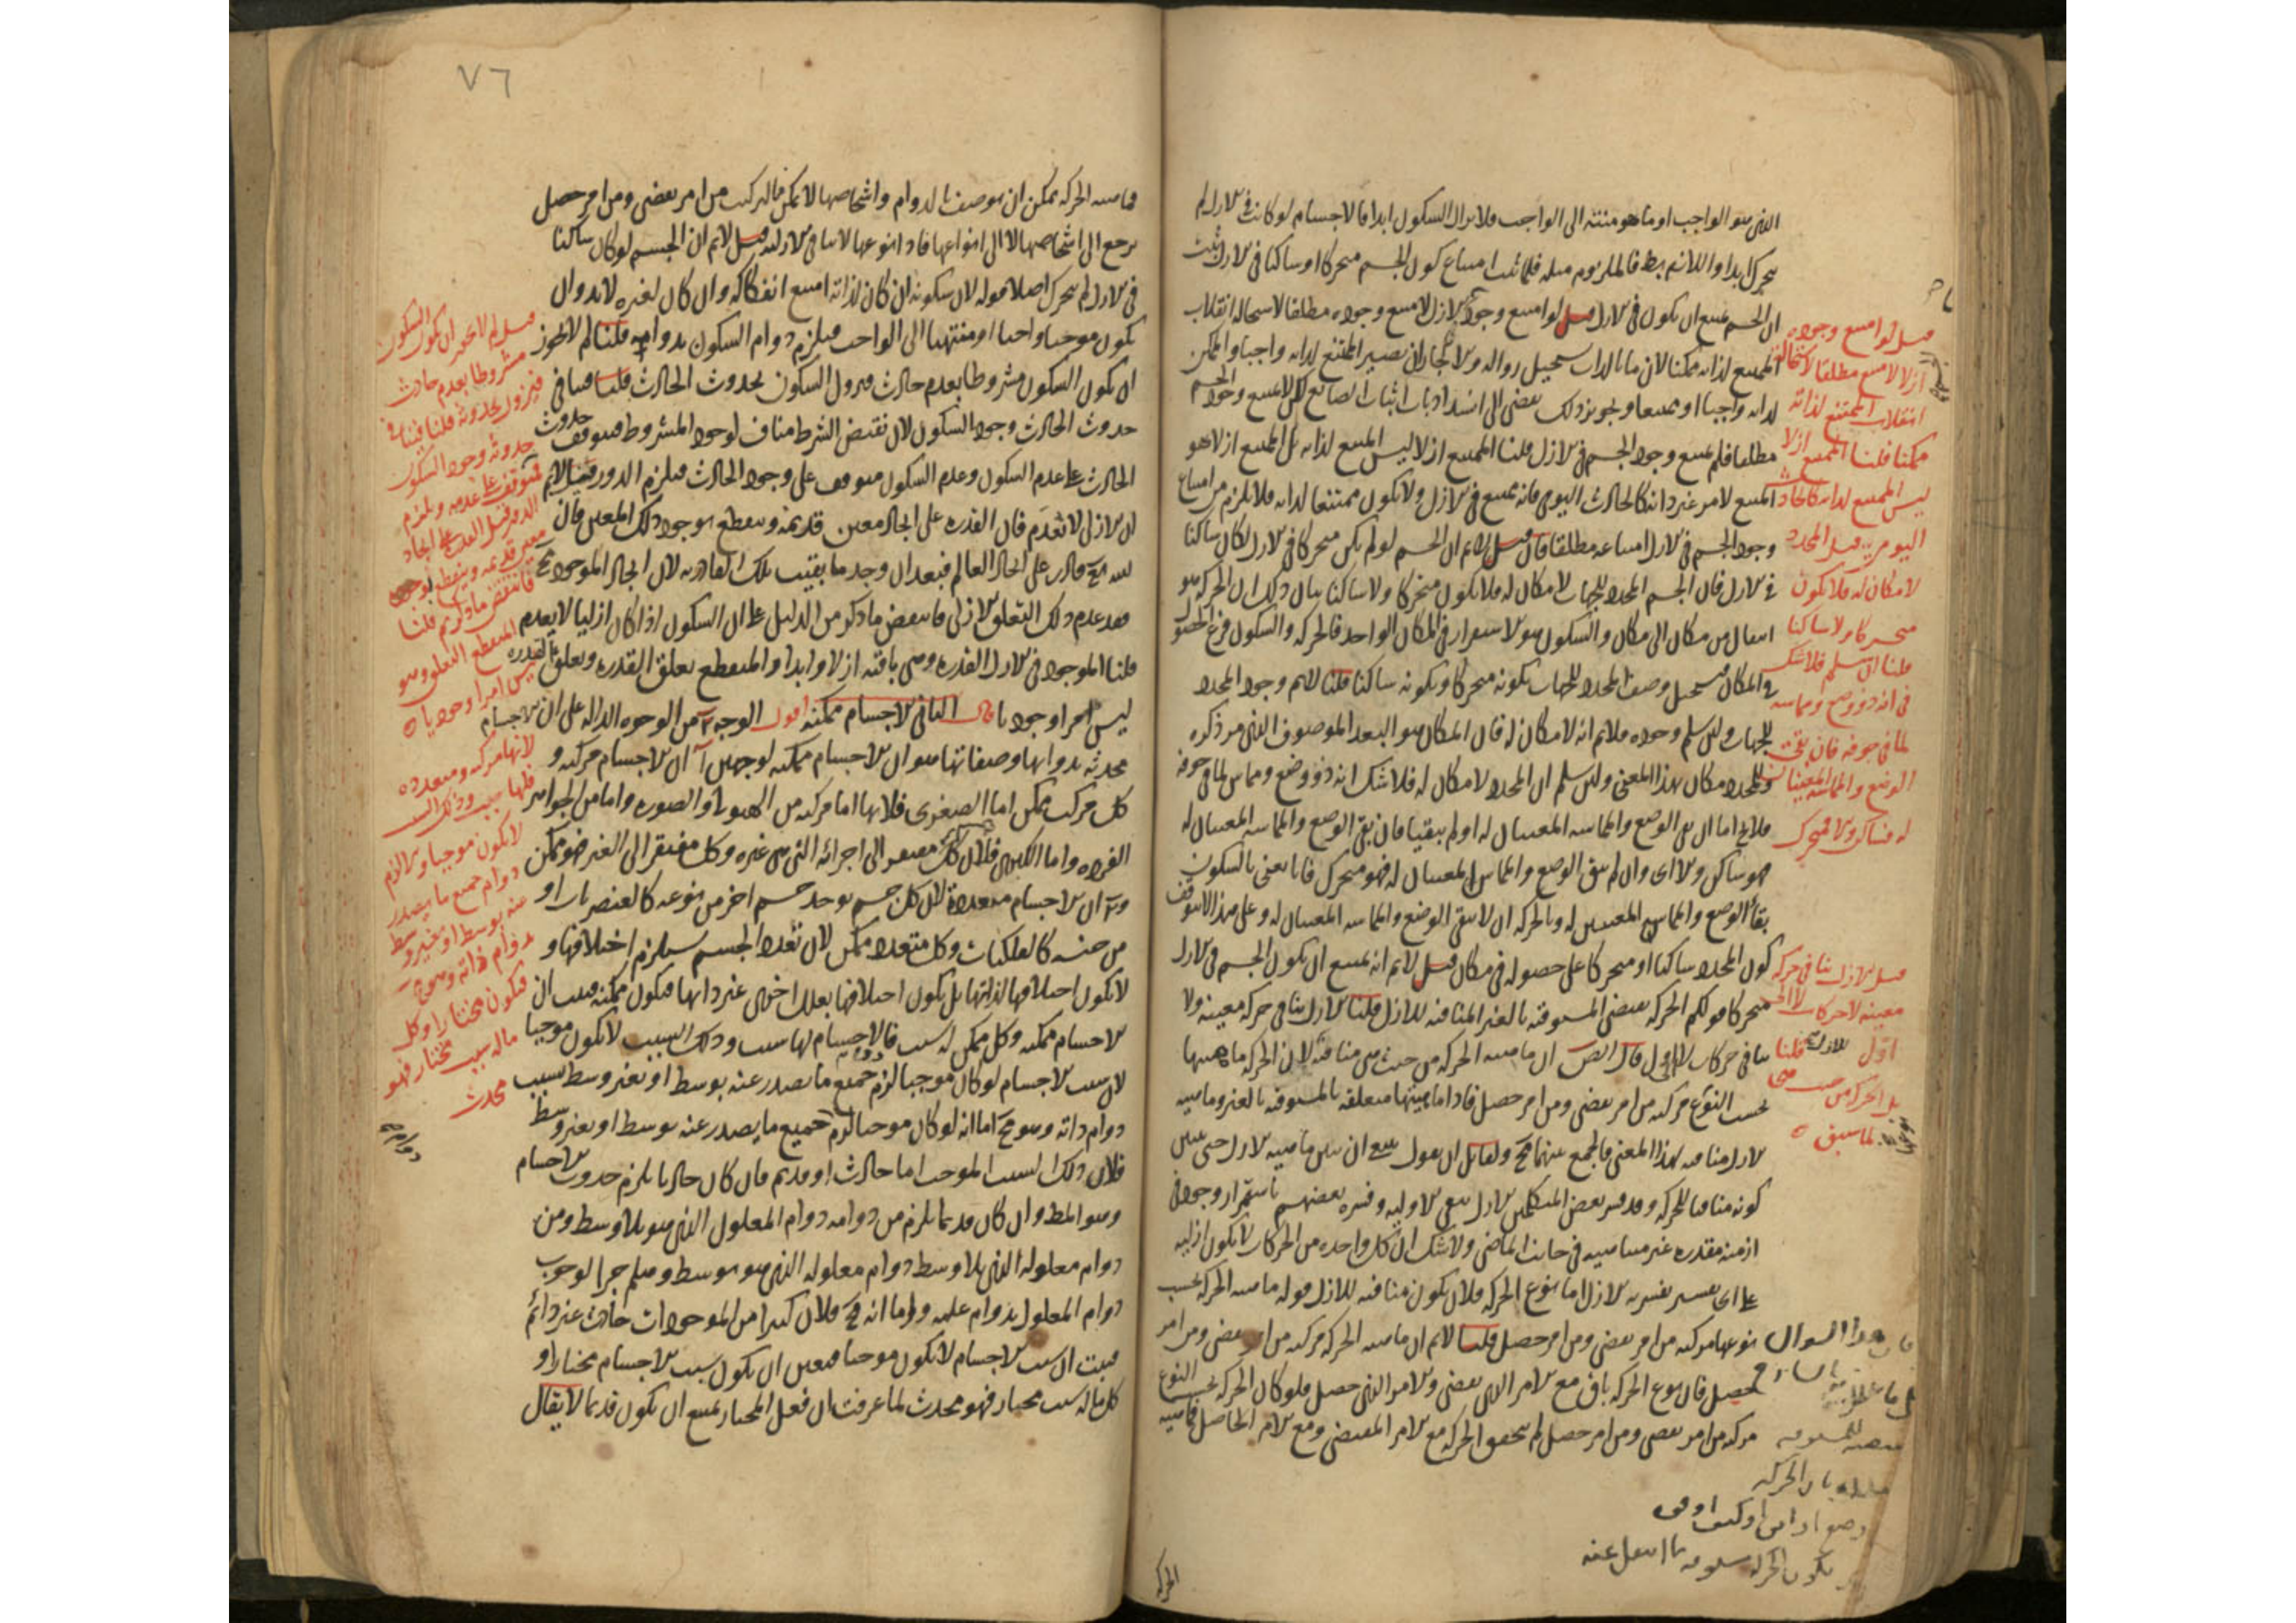 الذى هو الواجب او ما هو منتته الى الواجب فلا يزال السكون ابدا فالاجسام لو كانت فى الازل لم
يتحرك ابدا واللازم بط فالملزوم مثله فلما ثبت امتناع كون الجسم متحركا او ساكنا فى الازل ثبت
ان الجسم يمتنع ان يكون فى الازل قيل لو امتنع وجوده فى الازل لامتنع وجوده مطلقا لاستحالة انقلاب
الممتنع لذاته ممكنا لان ما بالذات يستحيل زواله ولا لجاز ان يصير الممتنع لذاته واجبا والممكن
لذاته واجبا او ممتنعا وتجويز ذلك يفضى الى انسداد باب اثبات الصانع لكن لا يمتنع وجود الجسم
مطلقا فلم يمتنع وجود الجسم فى الازل قلنا الممتنع ازلا ليس الممتنع لذاته بل الممتنع ازلا هو
الممتنع لامر غير ذاته كالحادث اليومى فانه يمتنع فى الازل ولا يكون ممتنعا لذاته فلا يلزم من امتناع
وجود الجسم فى الازل امتناعه مطلقا قال قيل لانم ان الجسم لو لم يكن متحركا فى الازل لكان ساكنا
فى الازل فان الجسم المحدد للجهات لا مكان له فلا يكون متحركا ولا ساكنا بيان ذلك ان الحركة هو
انتقال من مكان الى مكان والسكون هو الاستقرار فى المكان الواحد فالحركة والسكون فرع الحصول
فى المكان فيستحيل وصف المحدد للجهات بكونه متحركا وبكونه ساكنا قلنا لانم وجود المحدد
للجهات ولئن سلم وجوده فلانم انه لا مكان له فان المكان هو البعد الموصوف الذى مر ذكره
وللمحدد مكان بهذا المعنى ولئن سلم ان المحدد لا مكان له فلا شك انه ذو وضع ومماس لما فى جوفه
فلا يخ اما ان بقى الوضع والمماسة المعينان له او لم يبقيا فان بقى الوضع والمماسة المعينان له
فهو ساكن والا اى وان لم يبق الوضع والمماس المعينان له فهو متحرك فانا نعنى بالسكون
بقاء الوضع والمماسة المعينين له وبالحركة ان لا يبقى الوضع والمماسة المعينان له وعلى هذا لا يتوقف
كون المحدد ساكنا او متحركا على حصوله فى مكان قيل لانم انه يمتنع ان يكون الجسم فى الازل
متحركا قولكم الحركة تقتضى المسبوقية بالغير المنافية للازل قلنا الازل ينافى حركة معينة ولا
ينافى حركات لا اول قال النص ان ماهية الحركة من حيث هى منافية لان الحركة ماهيتها
بحسب النوع مركبة من امر تقضى ومن امر حصل فاذا ماهيتها متعلقة بالمسبوقية بالغير وماهية
الازل منافية لهذا المعنى فالجمع بينهما مح ولقائل ان يقول ينبغى ان نبين ماهية الازل حتى نبين
كونه منافيا للحركة وقد فسر بعض المتكلمين الازل بنفى الاولية وفسره بعضهم باستمرار وجود فى
ازمنة مقدرة غير متناهية فى جانب الماضى ولا شك ان كل واحدة من الحركات لا تكون ازلية
على اى تفسير يفسر به الازل اما نوع الحركة فلا يكون منافيه للازل قوله ماهية الحركة بحسب
نوعها مركبة من امر تقضى ومن امر حصل قلنا لانم ان ماهية الحركة مركبة من امر تقضى ومن امر
حصل فان نوع الحركة باق مع الامر الذى تقضى والامر الذى حصل فلو كان الحركة بحسب النوع
مركبة من امر تقضى ومن امر حصل لم يتحقق الحركة مع الامر المقتضى ومع الامر الحاصل فماهية
قيل لو امتنع وجوده
ازلا لامتنع مطلقا لاستحالة
انقلاب الممتنع لذاته
ممكنا قلنا الممتنع ازلا
ليس الممتنع لذاته كالحادث
اليومى قيل المحدد
لا مكان له فلا يكون
متحركا ولا ساكنا
قلنا ان سلم فلا شك
فى انه ذو وضع ومماسة
لما فى جوفه فان بقى
الوضع والمماسة المعينان
له فساكن والا فمتحرك
قيل الازل ينافى حركة
معينة لا حركات لا الى
اول قلنا
بل الحركة من حيث هى
لما سبق
هذا السوال
بان الحركة
الحركة
٧٦
فماهية الحركة يمكن ان يوصف بالدوام واشخاصها لا يمكن فالتركيب من امر تقضى ومن امر حصل
يرجع الى اشخاصها لا الى انواعها فاذا نوعها لا ينافى الازلية قيل لانم ان الجسم لو كان ساكنا
فى الازل لم يتحرك اصلا قوله لان سكونه ان كان لذاته امتنع انفكاكه وان كان لغيره لابد وان
يكون موجبا واجبا او منتهيا الى الواجب فيلزم دوام السكون بدوامه قلنا لم لا يجوز
ان يكون السكون مشروطا بعدم حادث فيزول السكون بحدوث الحادث قلنا فينافى
حدوث الحادث وجود السكون لان نقيض الشرط مناف لوجود المشروط فيتوقف حدوث
الحادث على عدم السكون وعدم السكون يتوقف على وجود الحادث فيلزم الدور قيل لانم
ان الازلى لا ينعدم فان القدرة على ايجاد معين قديمة وينقطع بوجود ذلك المعين فان
الله تع قادر على ايجاد العالم فبعد ان وجد ما بقيت تلك القادرية لان ايجاد الموجود مح
فقد عدم ذلك التعلق الازلى فانتقض ما ذكر من الدليل على ان السكون اذا كان ازليا لا ينعدم
قلنا الموجود فى الازل القدرة وهى باقية ازلا وابدا والمنقطع تعلق القدرة وتعلق القدرة
ليس امرا وجوديا قال الثانى الاجسام ممكنة اقول الوجه ٢ من الوجوه الدالة على ان الاجسام
محدثة بذواتها وصفاتها هو ان الاجسام ممكنة لوجهين آ ان الاجسام مركبة و
كل مركب ممكن اما الصغرى فلانها اما مركبة من الهيولى والصورة واما من الجواهر
الفردة واما الكبرى فلان كل مركب مفتقر الى اجزائه التى هى غيره وكل مفتقر الى الغير فهو ممكن
و٢ ان الاجسام متعددة لان كل جسم يوجد جسم اخر من نوعه كالعنصريات او
من جنسه كالفلكيات وكل متعدد ممكن لان تعدد الجسم يستلزم اختلافها و
لا يكون اختلافها لذاتها بل يكون اختلافها بعلل اخرى غير ذاتها فيكون ممكنة فثبت ان
الاجسام ممكنة وكل ممكن له سبب فالاجسام لها سبب وذلك السبب لا يكون موجبا
لان سبب الاجسام لو كان موجبا لزم دوام جميع ما يصدر عنه بوسط او بغير وسط بسبب
دوام ذاته وهو مح اما انه لو كان موجبا لزم جميع ما يصدر عنه بوسط او بغير وسط
فلان ذلك السبب الموجب اما حادث او قديم فان كان حادثا يلزم حدوث الاجسام
وهو المط وان كان قديما يلزم من دوامه دوام المعلول الذى هو بلا وسط ومن
دوام معلوله الذى بلا وسط دوام معلوله الذى هو بوسط وهلم جرا لوجوب
دوام المعلول بدوام علته واما انه مح فلان كثيرا من الموجودات حادث غير دائم
فثبت ان سبب الاجسام لا يكون موجبا فتعين ان يكون سبب الاجسام مختارا و
كل ما له سبب مختار فهو محدث لما عرفت ان فعل المختار يمتنع ان يكون قديما لا يقال
قيل لم لا يجوز ان يكون السكون
مشروطا بعدم حادث
فيزول بحدوثه قلنا فينافى
حدوثه وجود السكون
فتوقف على عدمه ويلزم
الدور قيل القدرة على ايجاد
معين قديمة وينقطع بوجوده
فانتقض ما ذكرتم قلنا
المنقطع التعلق وهو
ليس امرا وجوديا
لانها مركبة ومتعددة
فلها سبب وذلك السبب
لا يكون موجبا والا لزم
دوام جميع ما يصدر
عنه بوسط او بغير وسط
بدوام ذاته وهو مح
فيكون مختارا وكل
ما له سبب مختار فهو
محدث